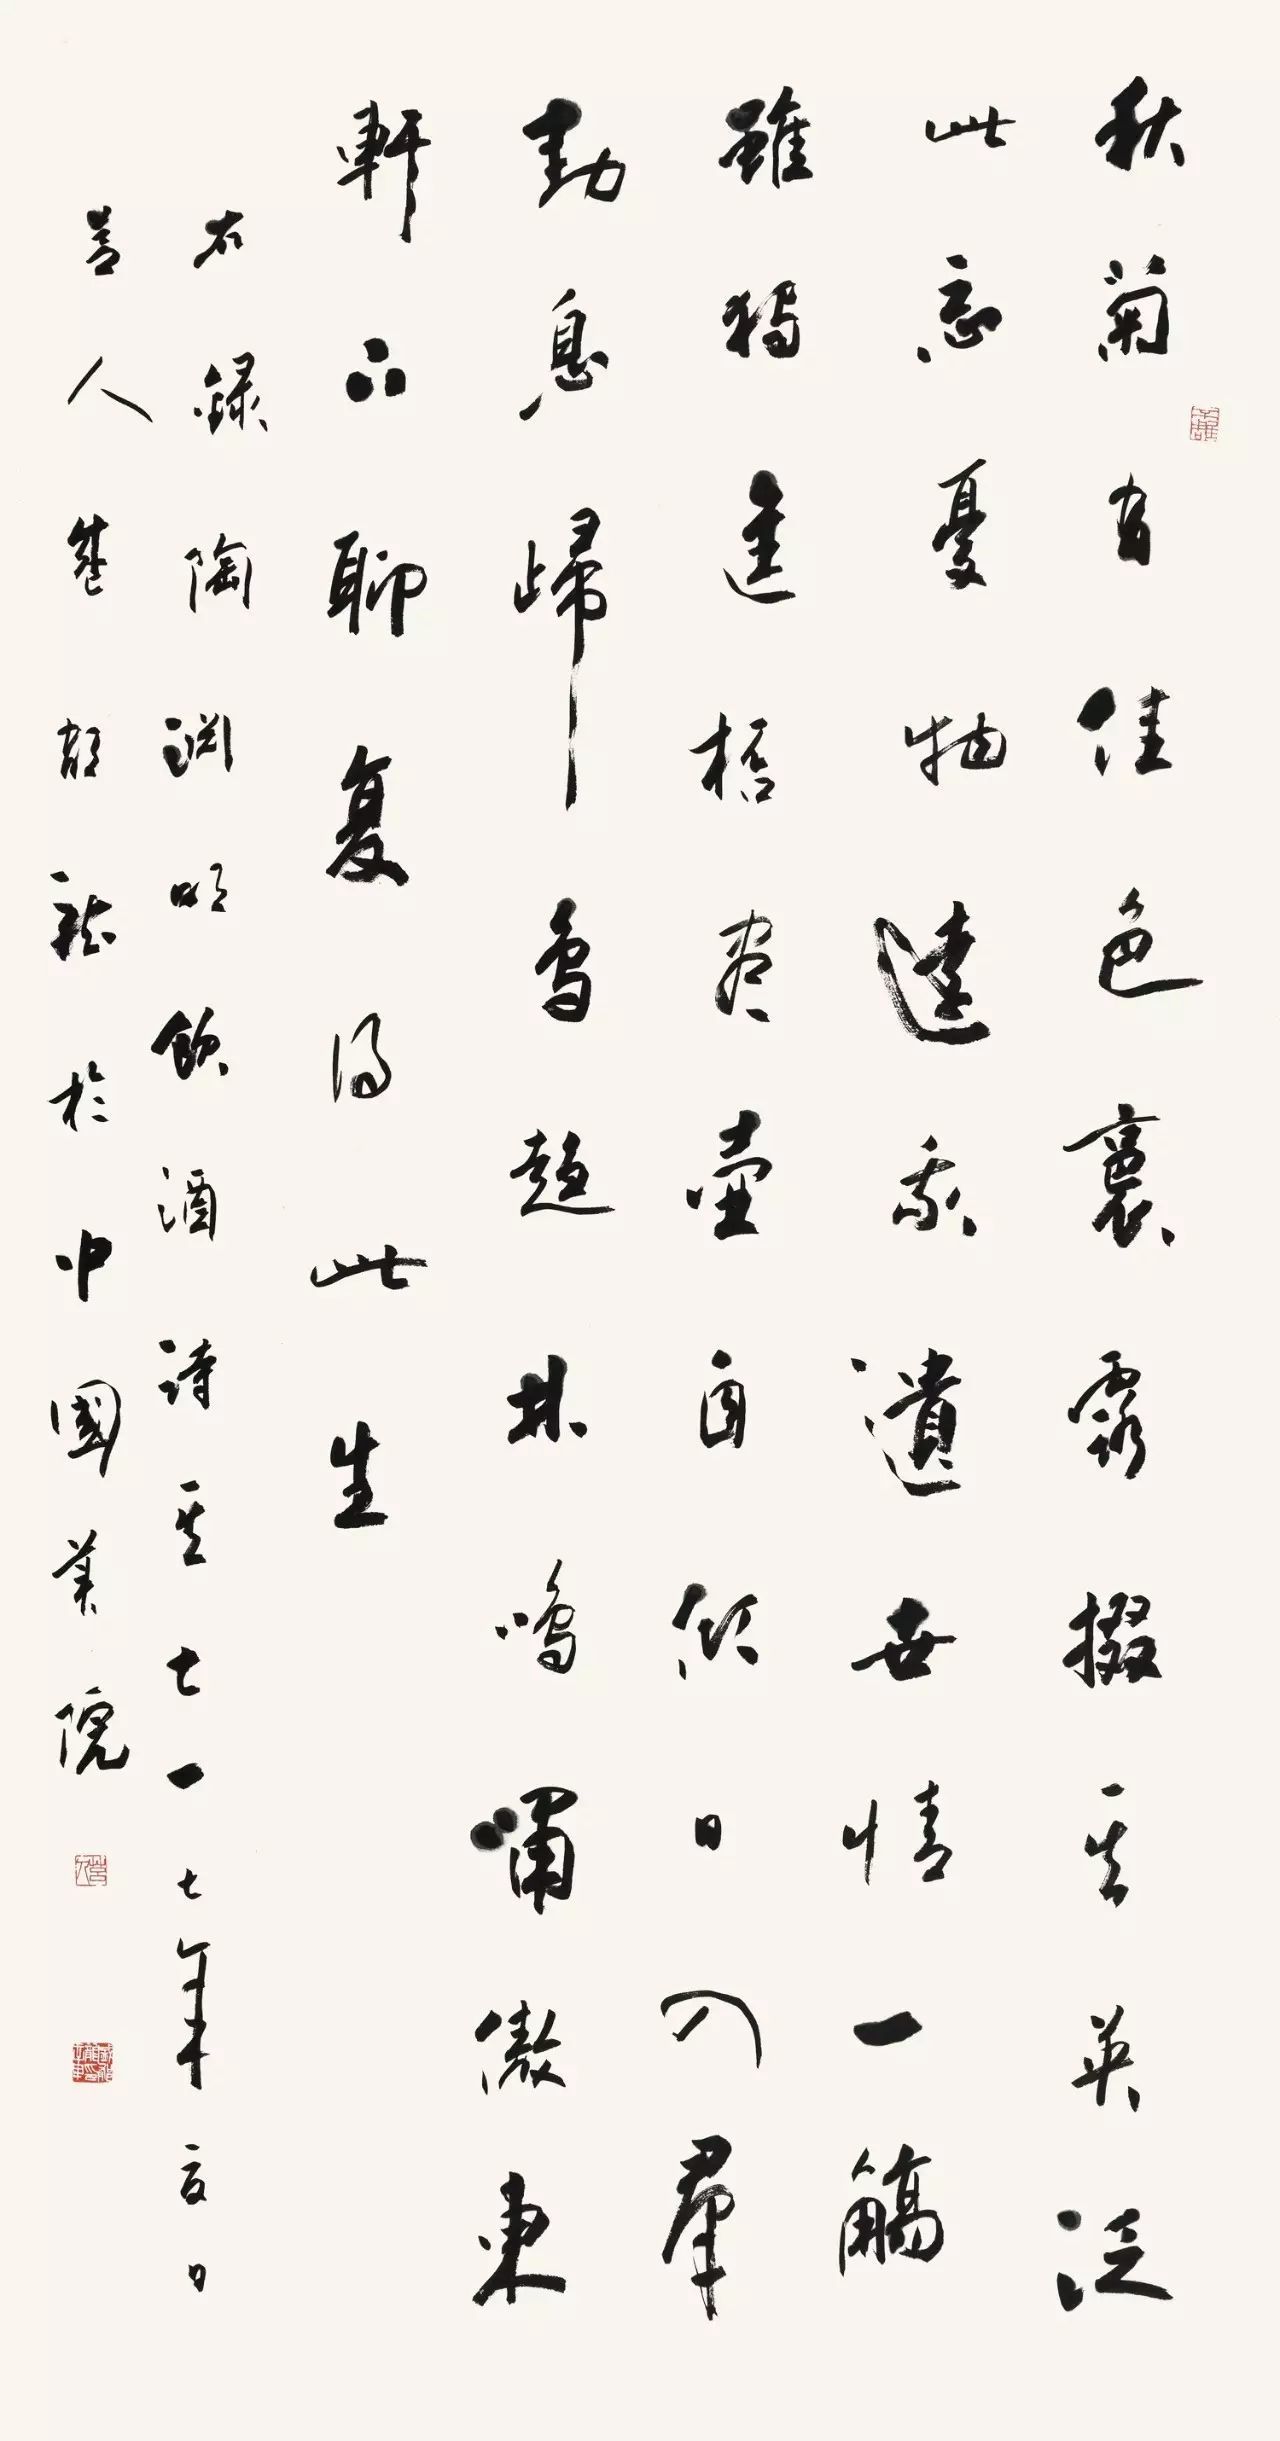 秋菊有佳色裛露掇其英泛
此忘憂物達我遺世情一觴
雖獨進桮盡壺自傾日入羣
動息歸鳥趨林鳴嘯傲東
軒下聊复得此生
右錄陶淵明飲酒詩其七一七年夏日
莒人於中國美院